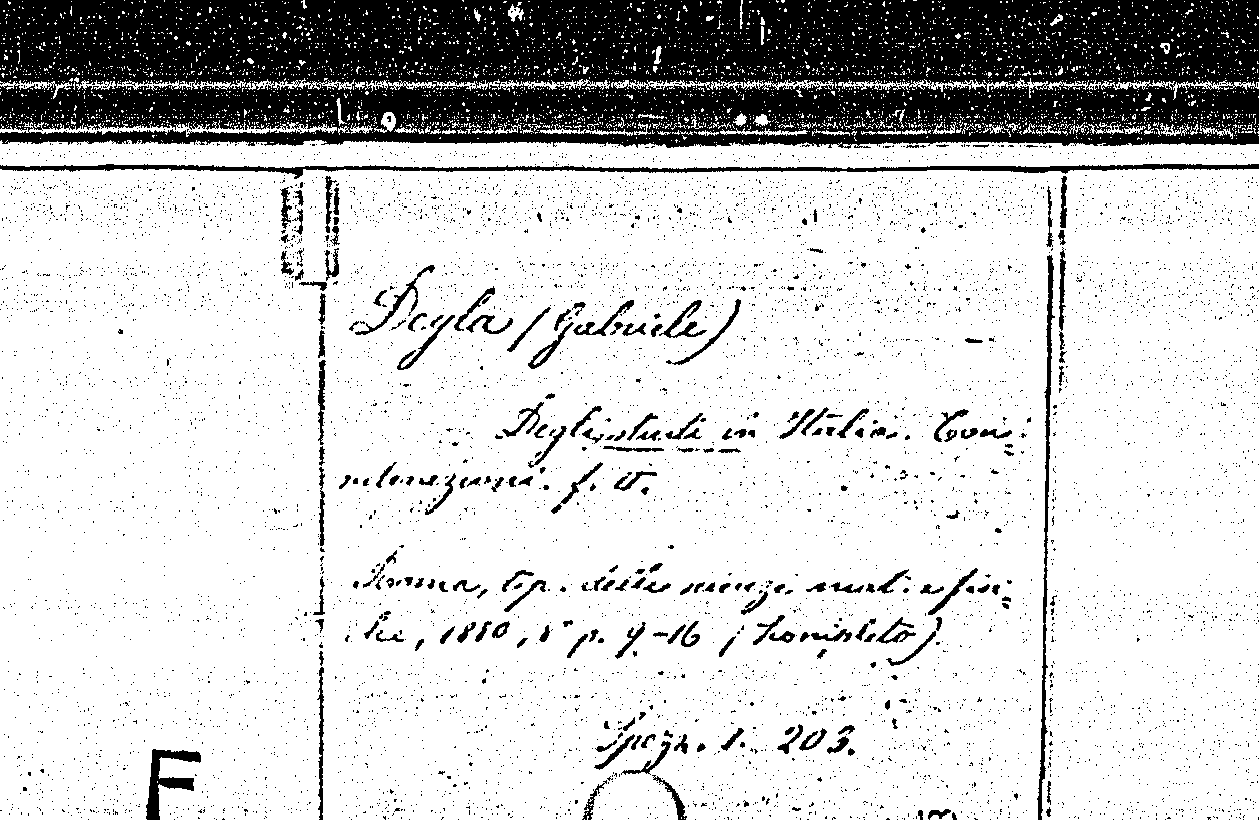 Deyla (Gabriele)
Degli studi in Italia. Con=
f. V.
Roma, tip. delle scienze mat. e fisi=
che, 1880, 8° p. 9-16 (Completo)
1. 203.
F